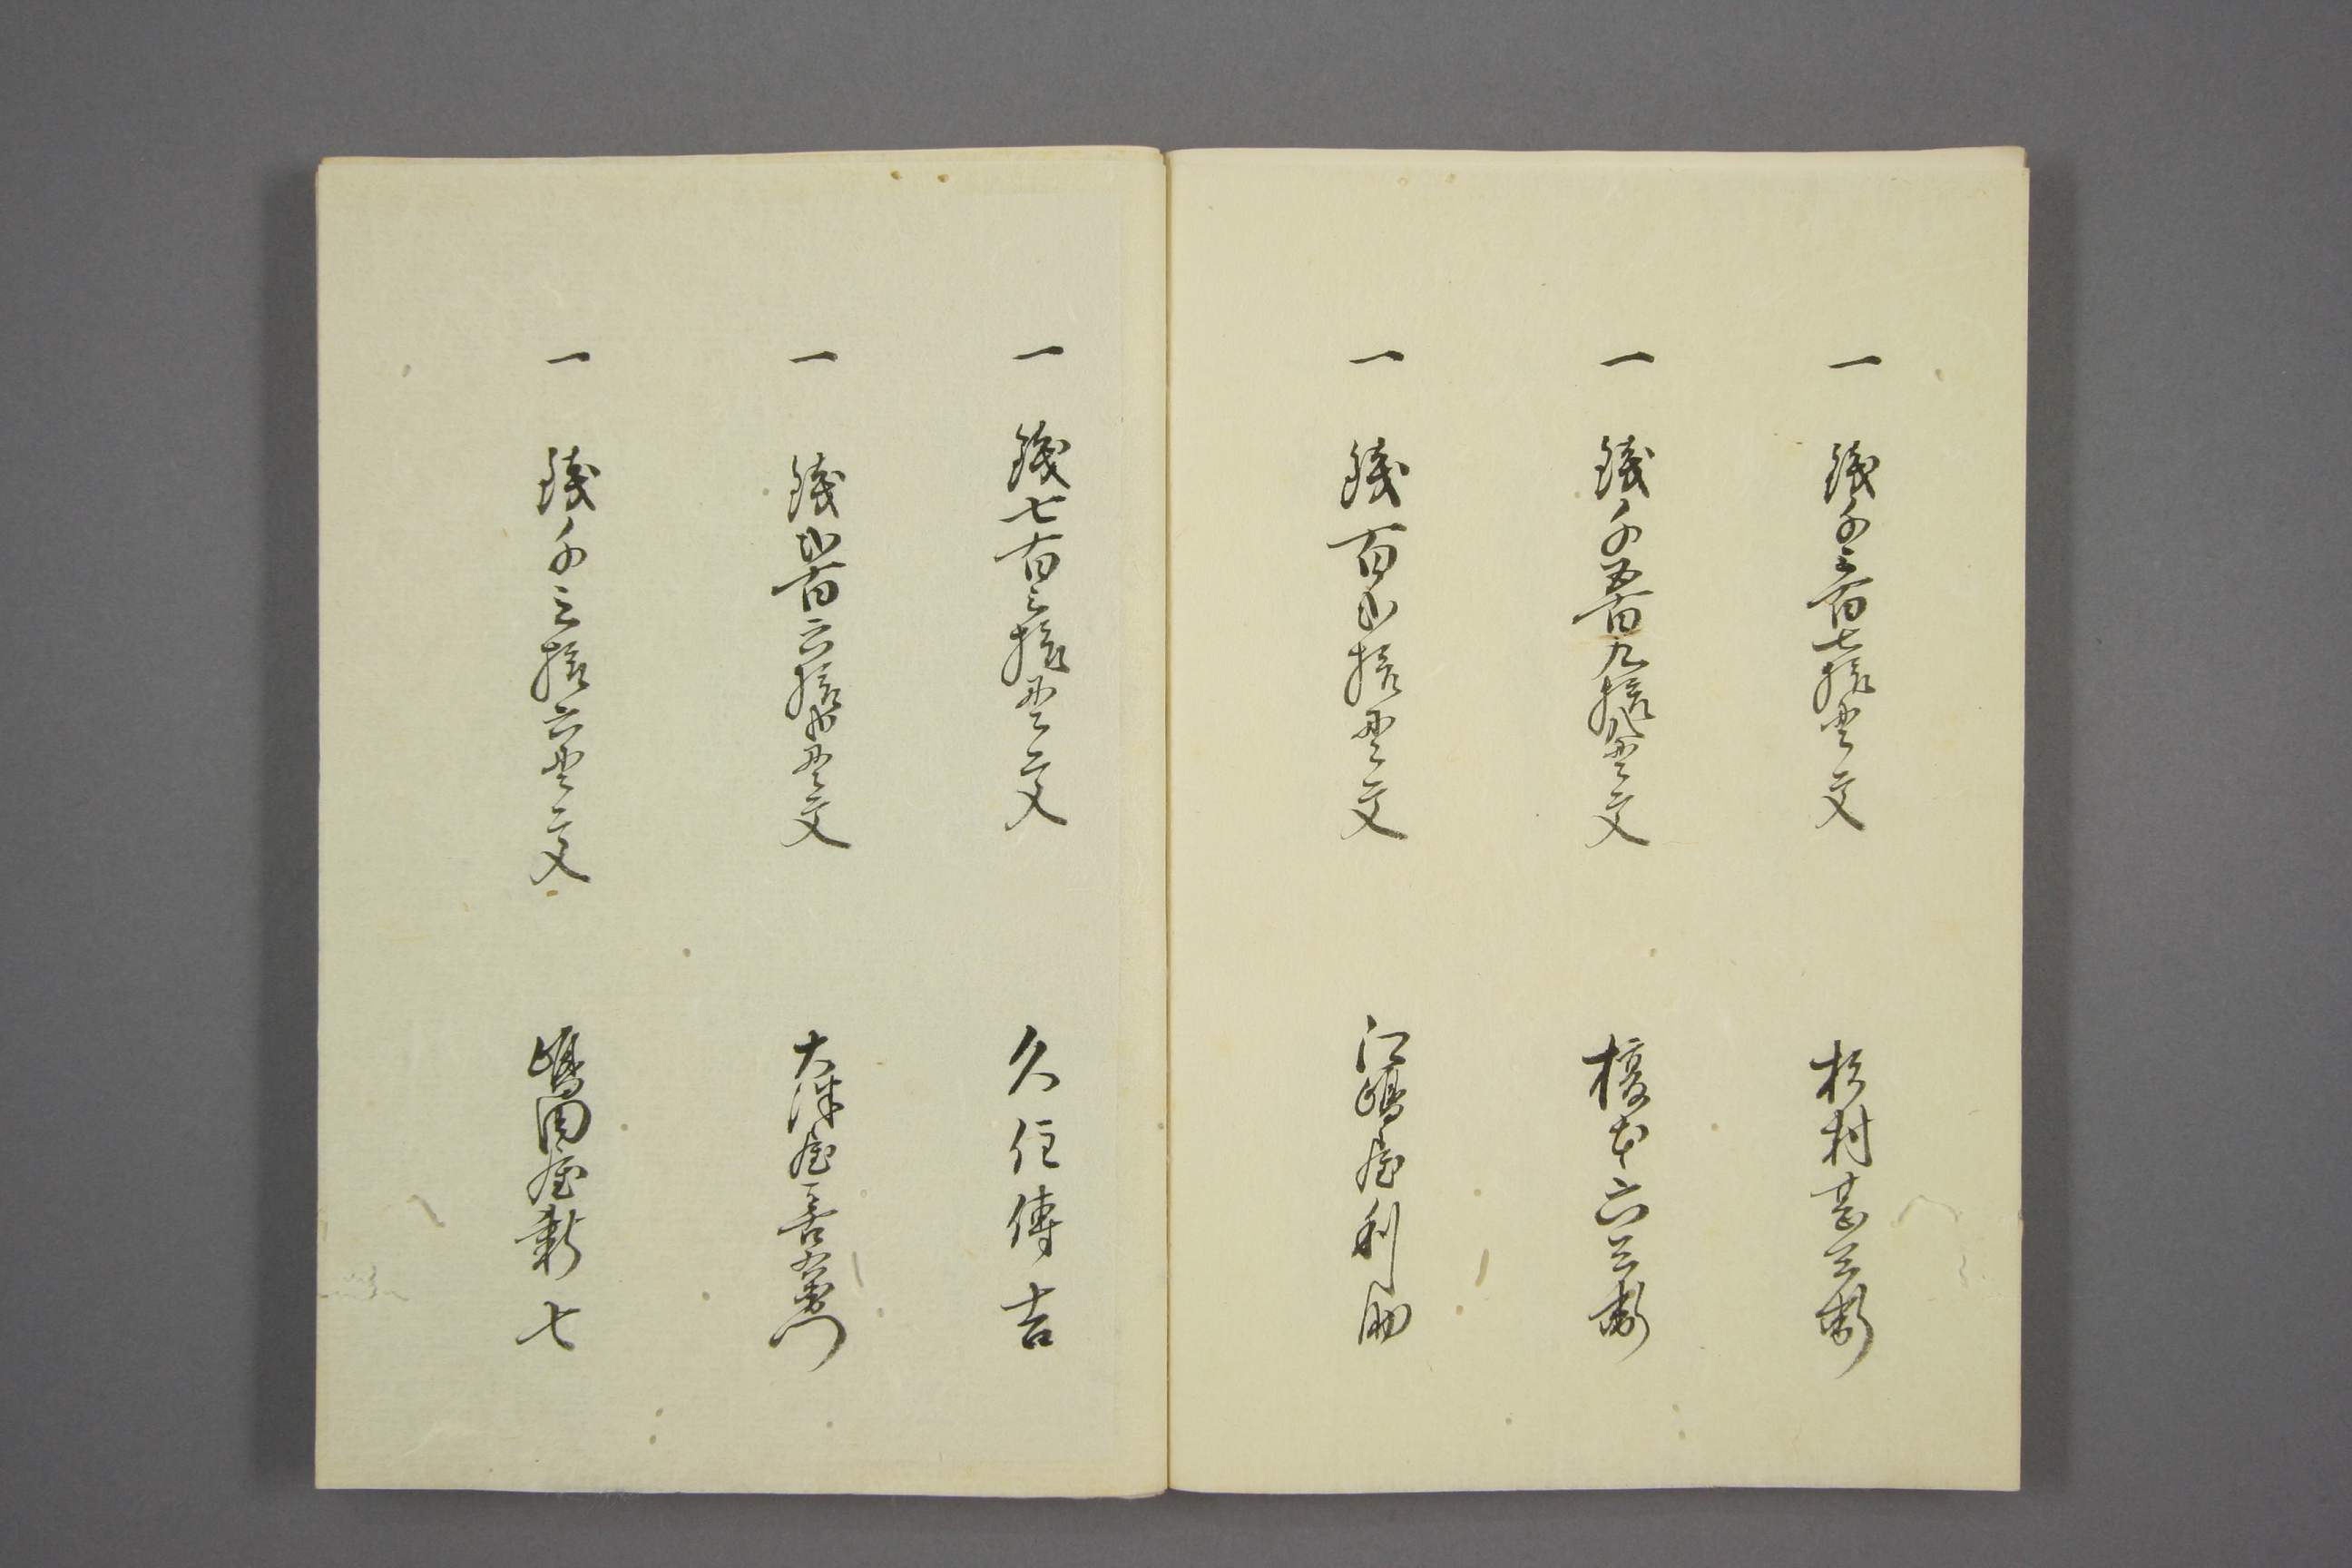 一 銭千三百七拾貫文 杉村甚兵衛
一 銭千五百九拾八貫文 榎本六兵衛
一 銭百四拾貫文 江嶋屋利助
一 銭七百三拾貫文 久住傳吉
一 銭四百六拾四貫文 大津屋善右衛門
一 銭千三拾六貫文 嶋田屋新七